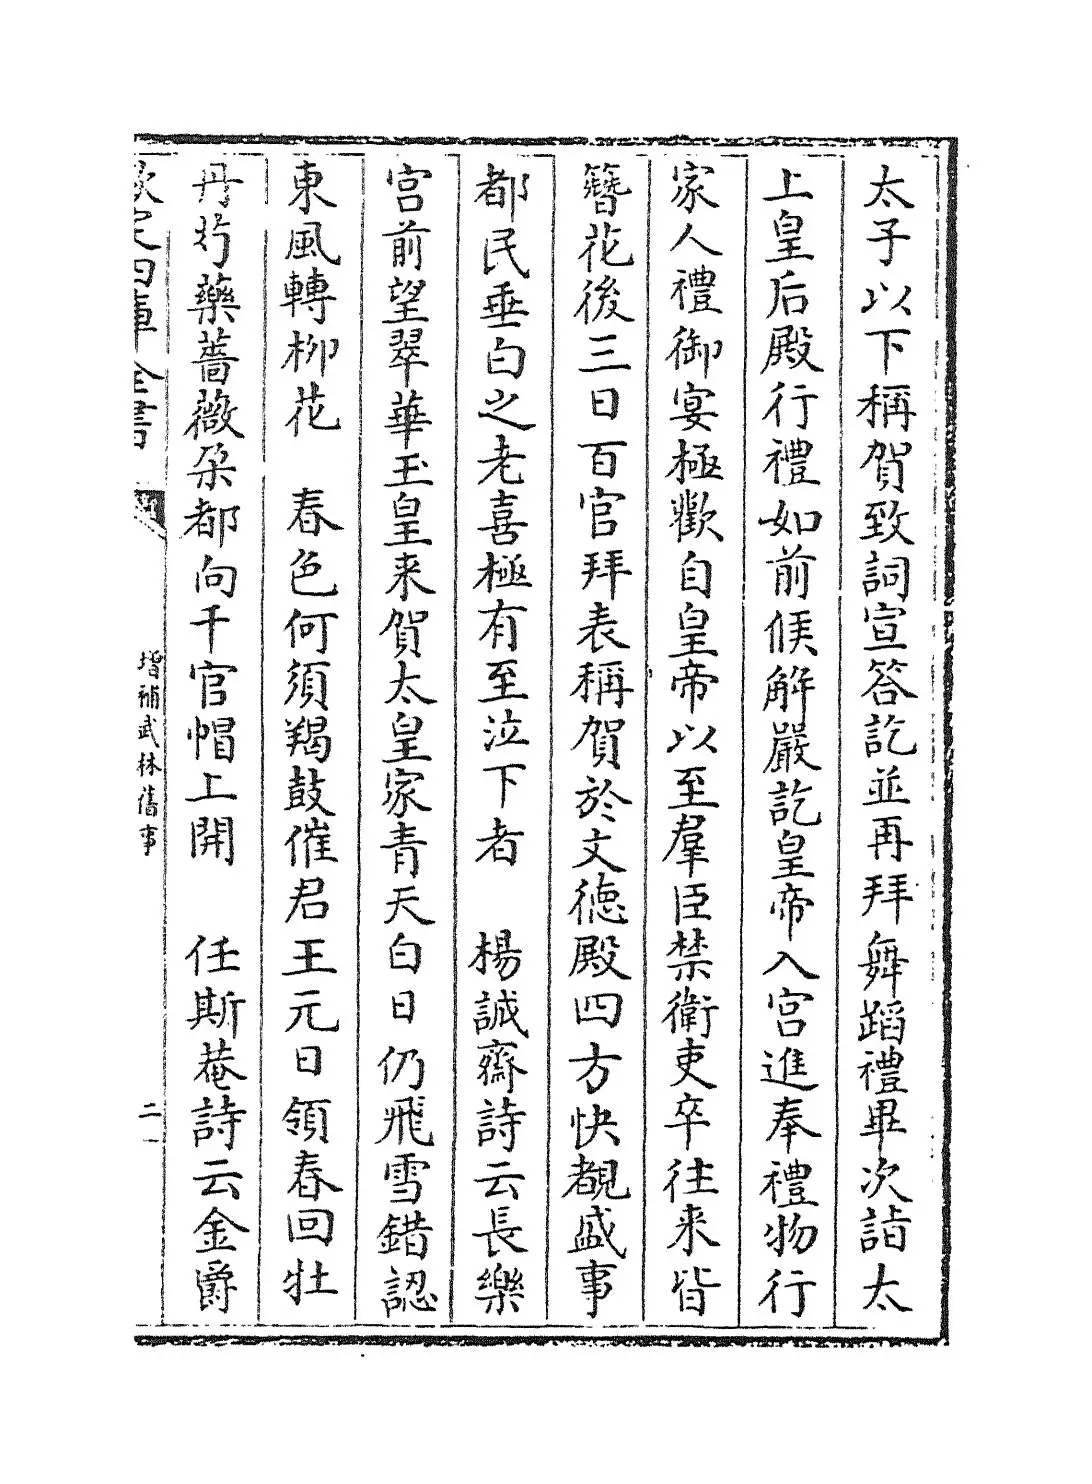 太子以下稱賀致詞宣答訖並再拜舞蹈禮畢次詣太
上皇后殿行禮如前候解嚴訖皇帝入宮進奉禮物行
家人禮御宴極歡自皇帝以至羣臣禁衛吏卒往来皆
簪花後三日百官拜表稱賀於文德殿四方快覩盛事
都民垂白之老喜極有至泣下者　楊誠齋詩云長樂
宮前望翠華玉皇来賀太皇家青天白日仍飛雪錯認
東風轉柳花　春色何須羯鼓催君王元日領春回牡
丹芍藥薔薇朶都向千官帽上開　任斯菴詩云金爵
欽定四庫全書
增補武林舊事
二